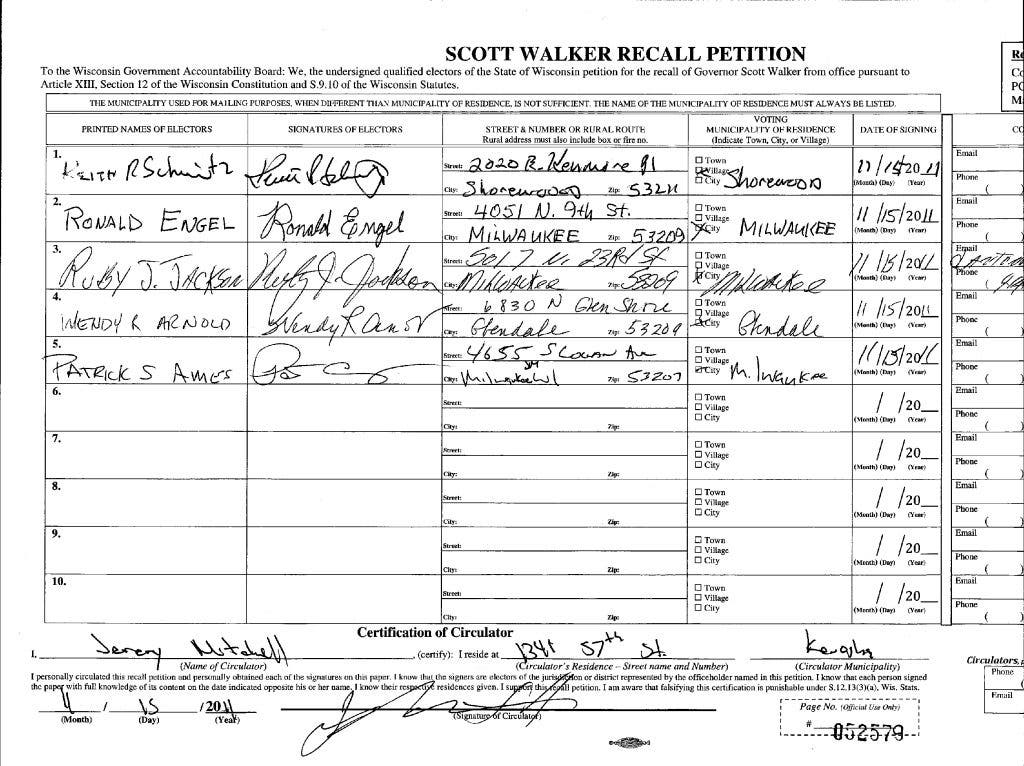 SCOTT WALKER RECALL PETITION
To the Wisconsin Government Accountability Board: We, the undersigned qualified electors of the State of Wisconsin petition for the recall of Governor Scott Walker from office pursuant to
Article XIII, Section 12 of the Wisconsin Constitution and S.9.10 of the Wisconsin Statutes.
THE MUNICIPALITY USED FOR MAILING PURPOSES, WHEN DIFFERENT THAN MUNICIPALITY OF RESIDENCE, IS NOT SUFFICIENT. THE NAME OF THE MUNICIPALITY OF RESIDENCE MUST ALWAYS BE LISTED.
PRINTED NAMES OF ELECTORS SIGNATURES OF ELECTORS STREET & NUMBER OR RURAL ROUTE Rural address must also include box or fire no. VOTING MUNICIPALITY OF RESIDENCE (Indicate Town, City, or Village) DATE OF SIGNING
1. KEITH R Schmitz Street: 2020 E. Kenmore Pl Town Village City Shorewood 11/15/2011 Email
City: Shorewood Zip: 53211 (Month) (Day) (Year) Phone (
2. RONALD ENGEL Ronald Engel Street: 4051 N. 9th St. Town Village City MILWAUKEE 11/15/2011 Email
City: MILWAUKEE Zip: 53209 (Month) (Day) (Year) Phone (
3. RUBY J. JACKSON Ruby J. Jackson Street: 5017 N. 23Rd St Town Village City Milwaukee 11/15/2011 Email
City: Milwaukee Zip: 53209 (Month) (Day) (Year) Phone (
4. WENDY R ARNOLD Wendy R Arnold Street: 6830 N Glen Shore Town Village City Glendale 11/15/2011 Email
City: Glendale Zip: 53209 (Month) (Day) (Year) Phone (
5. PATRICK S AMES Street: 4655 S Logan Av Town Village City Milwaukee 11/15/2011 Email
City: Milwaukee WI Zip: 53207 (Month) (Day) (Year) Phone (
6. Street: Town Village City / /20 Email
City: Zip: (Month) (Day) (Year) Phone (
7. Street: Town Village City / /20 Email
City: Zip: (Month) (Day) (Year) Phone (
8. Street: Town Village City / /20 Email
City: Zip: (Month) (Day) (Year) Phone (
9. Street: Town Village City / /20 Email
City: Zip: (Month) (Day) (Year) Phone (
10. Street: Town Village City / /20 Email
City: Zip: (Month) (Day) (Year) Phone (
Certification of Circulator
I, Jeremy Mitchell, (certify): I reside at 1341 57th St.
(Name of Circulator) (Circulator's Residence – Street name and Number) (Circulator Municipality)
Circulators,
Phone (
Email
I personally circulated this recall petition and personally obtained each of the signatures on this paper. I know that the signers are electors of the jurisdiction or district represented by the officeholder named in this petition. I know that each person signed
the paper with full knowledge of its content on the date indicated opposite his or her name. I know their respective residences given. I support this recall petition. I am aware that falsifying this certification is punishable under S.12.13(3)(a), Wis. Stats.
11 / 15 /2011
(Month) (Day) (Year) (Signature of Circulator)
Page No. (Official Use Only)
# 052579